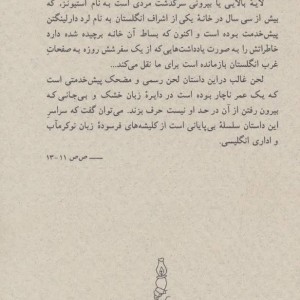 لایهٔ بالایی یا بیرونی سرگذشت مردی است به نام استیونز، که
بیش از سی سال در خانهٔ یکی از اشراف انگلستان به نام لرد دارلینگتن
پیش‌خدمت بوده است و اکنون که بساط آن خانه برچیده شده دارد
خاطراتش را به صورت یادداشت‌هایی که از یک سفر شش روزه به صفحات
غرب انگلستان بازمانده است برای ما نقل می‌کند...
لحن غالب در این داستان لحن رسمی و مضحک پیش‌خدمتی است
که یک عمر ناچار بوده است در دایرهٔ زبان خشک و بی‌جانی که
بیرون رفتن از آن در حد او نیست حرف بزند. می‌توان گفت که سراسر
این داستان سلسلهٔ بی‌پایانی است از کلیشه‌های فرسودهٔ زبان نوکرمآب
و اداری انگلیسی.
— ص‌ص ۱۱-۱۳